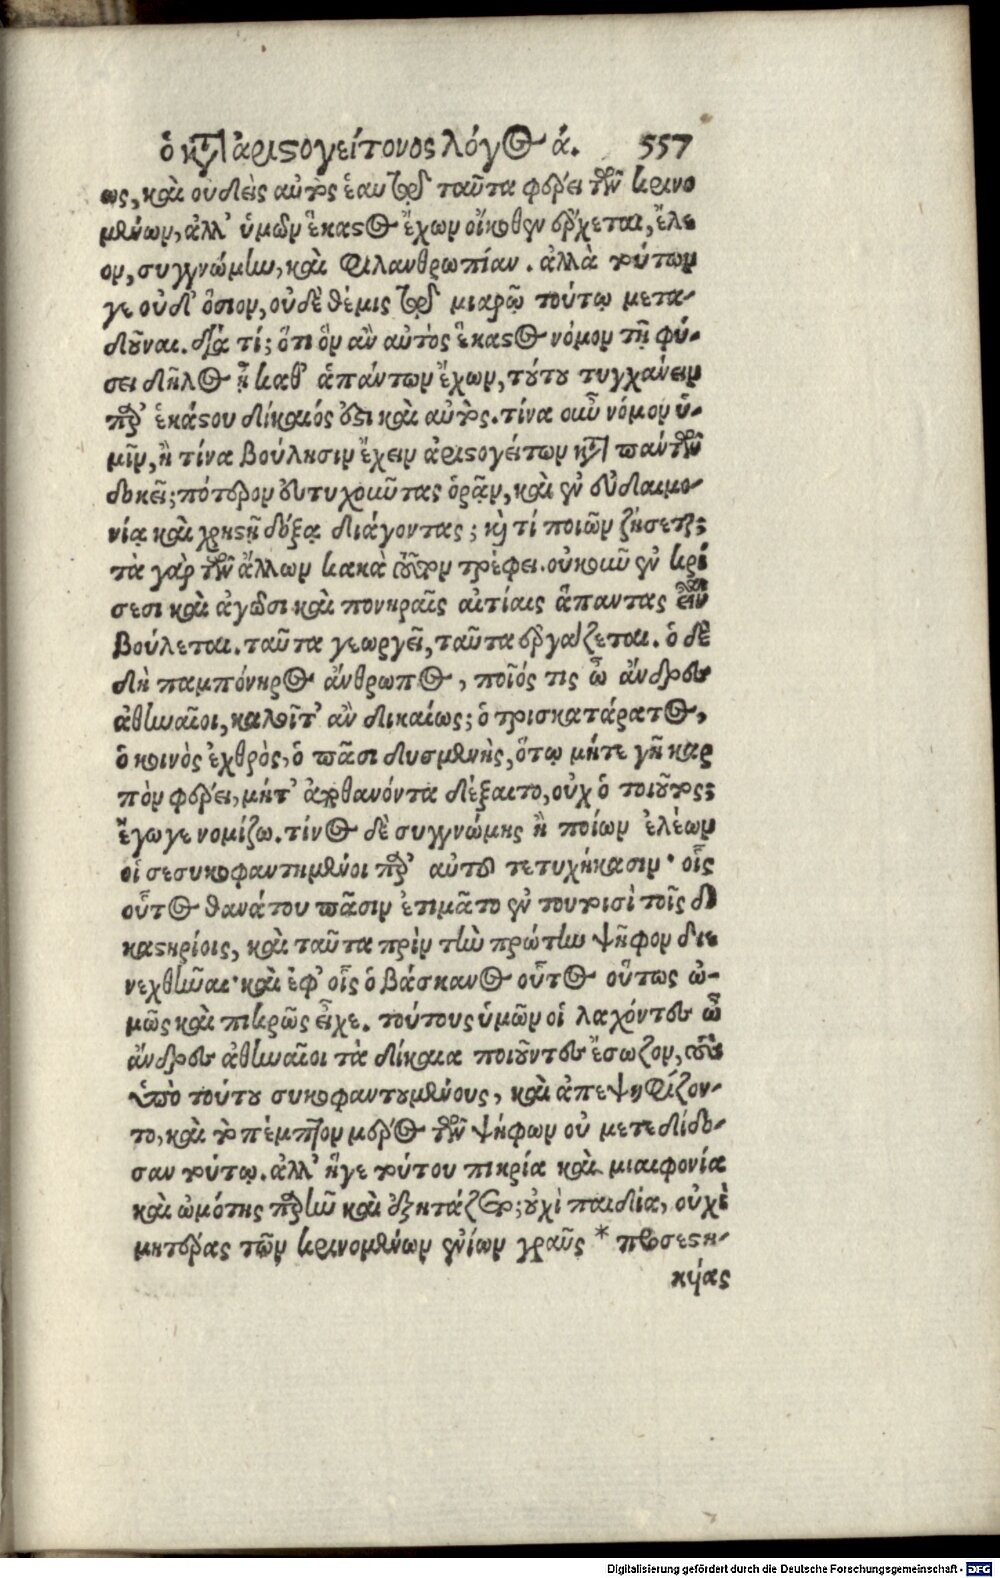 ὁ κατ' ἀριστογείτονος λόγος ά. 557
ως, καὶ οὐδεὶς αὐτὸς ἑαυτῷ ταῦτα φέρει τῶν κρινο
μένων, ἀλλ' ὑμῶν ἕκαστος ἔχων οἴκοθεν ἔρχεται, ἔλε
ον, συγγνώμην, καὶ φιλανθρωπίαν. ἀλλὰ τούτων
γε οὐδ' ὅσιον, οὐδὲ θέμις τῷ μιαρῷ τούτῳ μετα-
δοῦναι. διὰ τί; ὅτι ὃν ἂν αὐτὸς ἕκαστος νόμον τῇ φύ-
σει δῆλος ᾖ καθ' ἁπάντων ἔχων, τούτου τυγχάνειν
παρ' ἑκάστου δίκαιός ἐστι καὶ αὐτός. τίνα οὖν νόμον ὑ-
μῖν, ἢ τίνα βούλησιν ἔχειν ἀριστογείτων κατὰ πάντων
δοκεῖ; πότερον εὐτυχοῦντας ὁρᾷν, καὶ ἐν εὐδαιμο-
νίᾳ καὶ χρηστῇ δόξᾳ διάγοντας; καὶ τί ποιῶν ζήσεται;
τὰ γὰρ τῶν ἄλλων κακὰ τοῦτον τρέφει. οὐκοῦν ἐν κρί
σεσι καὶ ἀγῶσι καὶ πονηραῖς αἰτίαις ἅπαντας εἶναι
βούλεται. ταῦτα γεωργεῖ, ταῦτα ἐργάζεται. ὁ δὲ
δὴ παμπόνηρος ἄνθρωπος, ποῖός τις ὦ ἄνδρες
ἀθηναῖοι, καλοῖτ' ἂν δικαίως; ὁ τρισκατάρατος,
ὁ κοινὸς ἐχθρὸς, ὁ πᾶσι δυσμενὴς, ὅτῳ μήτε γῆ καρ
πὸν φέρει, μήτ' ἀποθανόντα δέξαιτο, οὐχ ὁ τοιοῦτος;
ἔγωγε νομίζω. τίνος δὲ συγγνώμης ἢ ποίων ἐλέων
οἱ σεσυκοφαντημένοι παρ' αὐτοῦ τετυχήκασιν· οἷς
οὗτος θανάτου πᾶσιν ἐτιμᾶτο ἐν τουτοισὶ τοῖς δι
καστηρίοις, καὶ ταῦτα πρὶν τὴν πρώτην ψῆφον διε
νεχθῆναι· καὶ ἐφ' οἷς ὁ βάσκανος οὗτος οὕτως ὠ-
μῶς καὶ πικρῶς εἶχε. τούτους ὑμῶν οἱ λαχόντες ὦ
ἄνδρες ἀθηναῖοι τὰ δίκαια ποιοῦντες ἔσωζον, τοὺς
ὑπὸ τούτου συκοφαντουμένους, καὶ ἀπεψηφίζον-
το, καὶ τὸ πέμπτον μέρος τῶν ψήφων οὐ μετεδίδο-
σαν τούτῳ. ἀλλ' ἥγε τούτου πικρία καὶ μιαιφονία
καὶ ὠμότης παρῆν καὶ ἐξητάζετο; οὐχὶ παιδία, οὐχὶ
μητέρας τῶν κρινομένων ἐνίων γραῦς * προσεστη-
κυίας
Digitalisierung gefördert durch die Deutsche Forschungsgemeinschaft - DFG